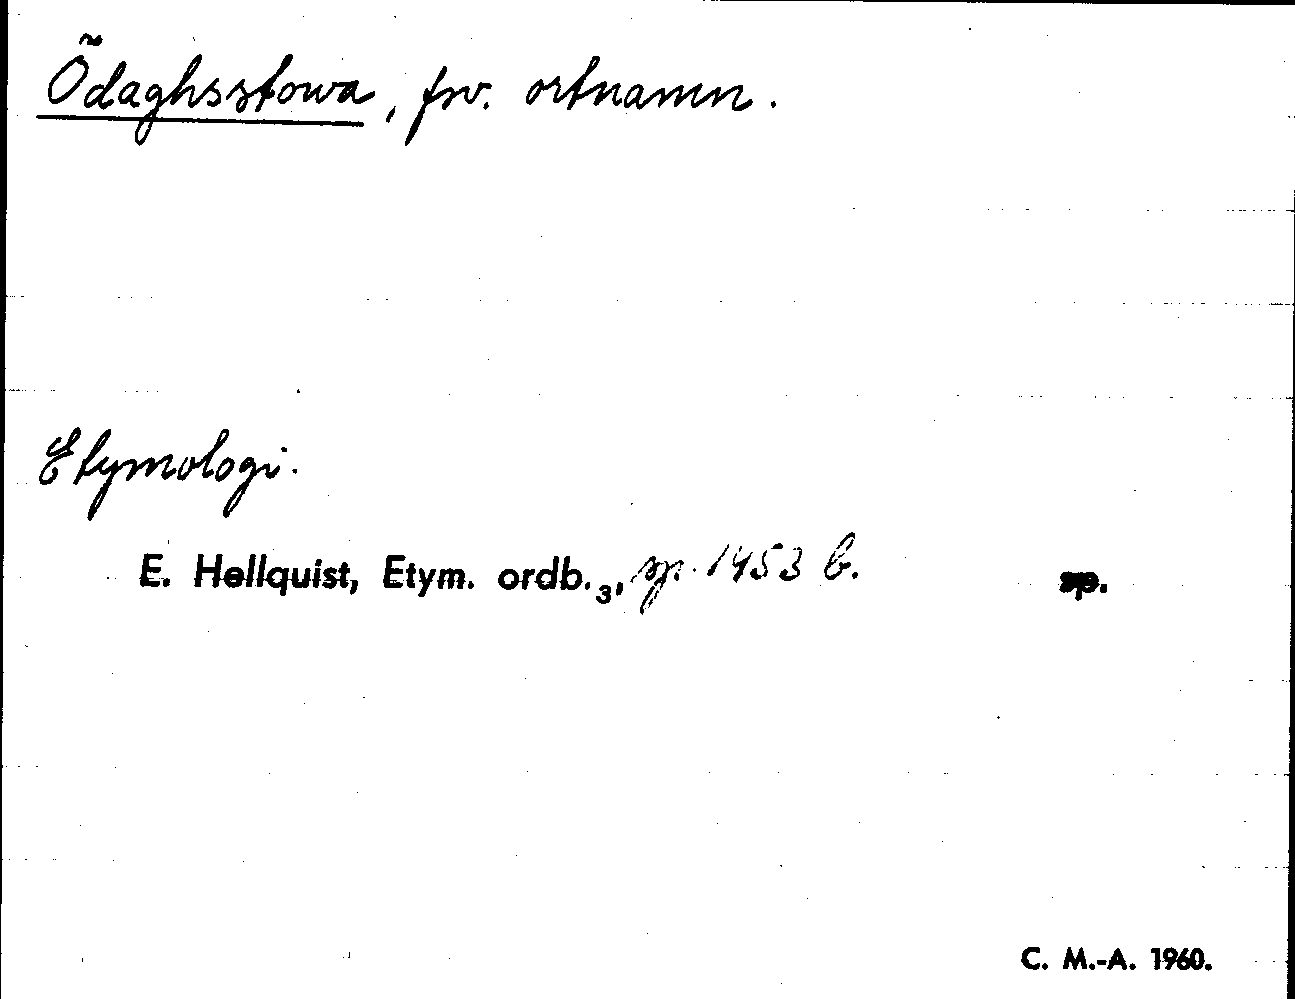 Ödaghsstowa, fsv. ortnamn.
Etymologi.
E. Hellquist, Etym. ordb.3, sp. 1453 b. sp.
C. M.-A. 1960.